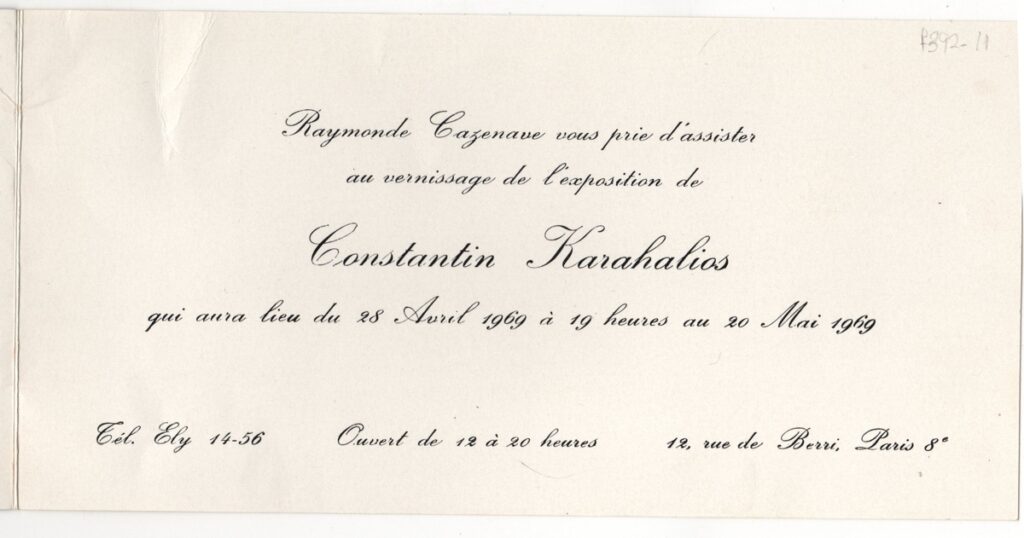 Raymonde Cazenave vous prie d'assister
au vernissage de l'exposition de
Constantin Karahalios
qui aura lieu du 28 Avril 1969 à 19 heures au 20 Mai 1969
Tél. Ely 14-56 Ouvert de 12 à 20 heures 12, rue de Berri, Paris 8e